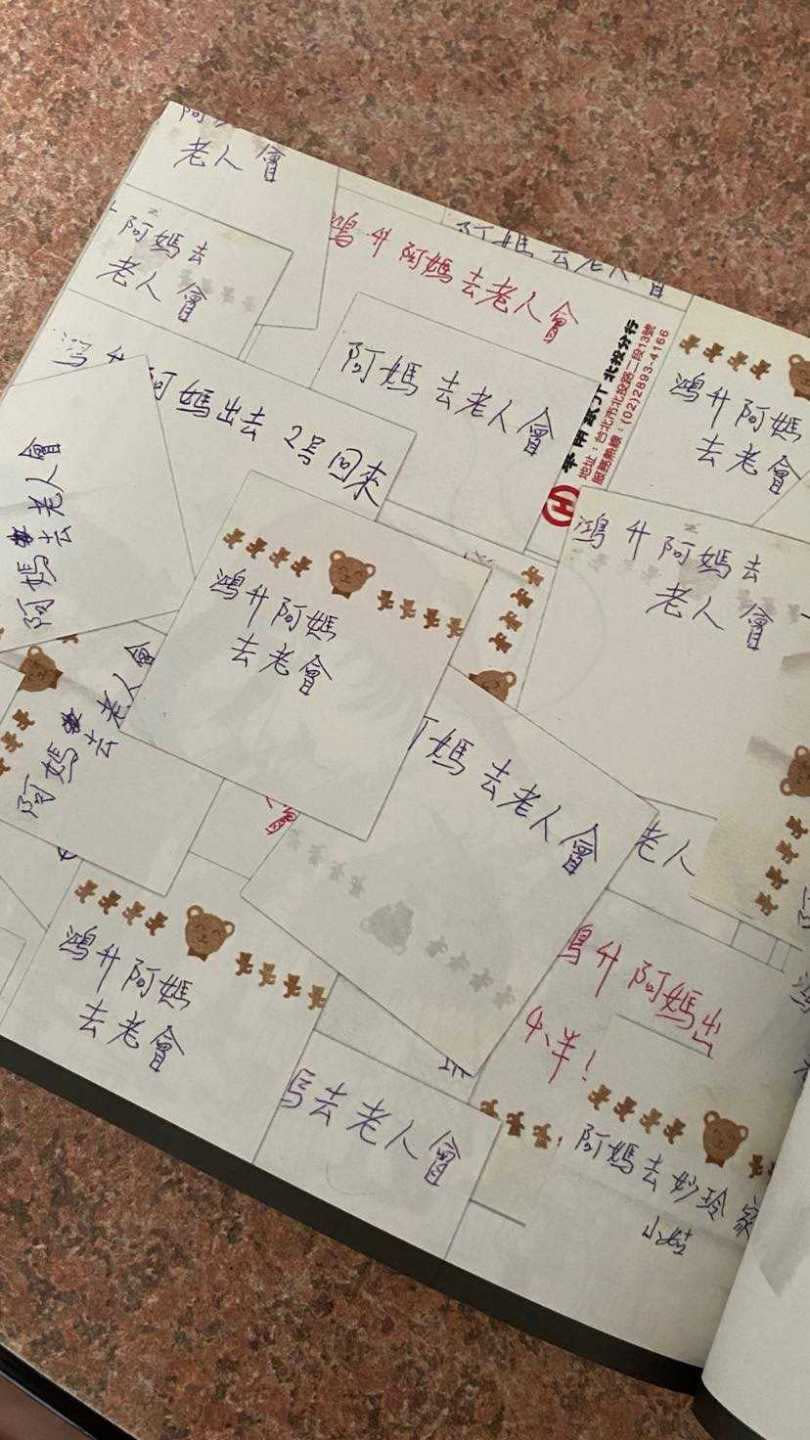 老人會
阿媽去
老人會
鴻升阿媽去老人會
阿媽去老人會
阿媽去老人會
北投分行
地址：台北市北投路一段13號
服務熱線：(02)2893-4166
鴻升阿媽
去老會
阿媽出去 2号回來
阿媽去老人會
鴻升阿媽
去老會
鴻升阿媽去
老人會
阿媽去老人會
媽去老人會
老人
鴻升阿媽
去老會
升阿媽出
小羊！
去老人會
阿媽去妙玲家